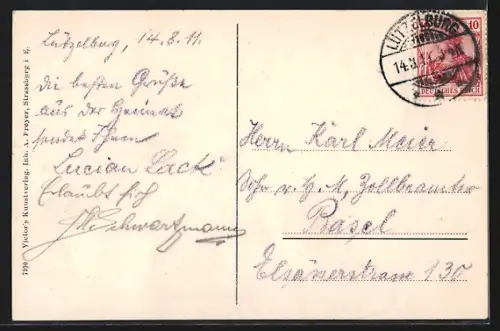 Lützelburg, 14.8.11.
die besten Grüße
aus der Heimat
sendet Ihnen
Lucian Lack
Erlaubt sich
Schwartzmann
7190 Victor's Kunstverlag, Inh. A. Freyer, Strassburg i. E.
LÜTZELBURG
14.8.11
10
DEUTSCHES REICH
Herrn Karl Meier
Sohn v. G. M, Zollbeamter
Basel
Elsäßerstrasse 130